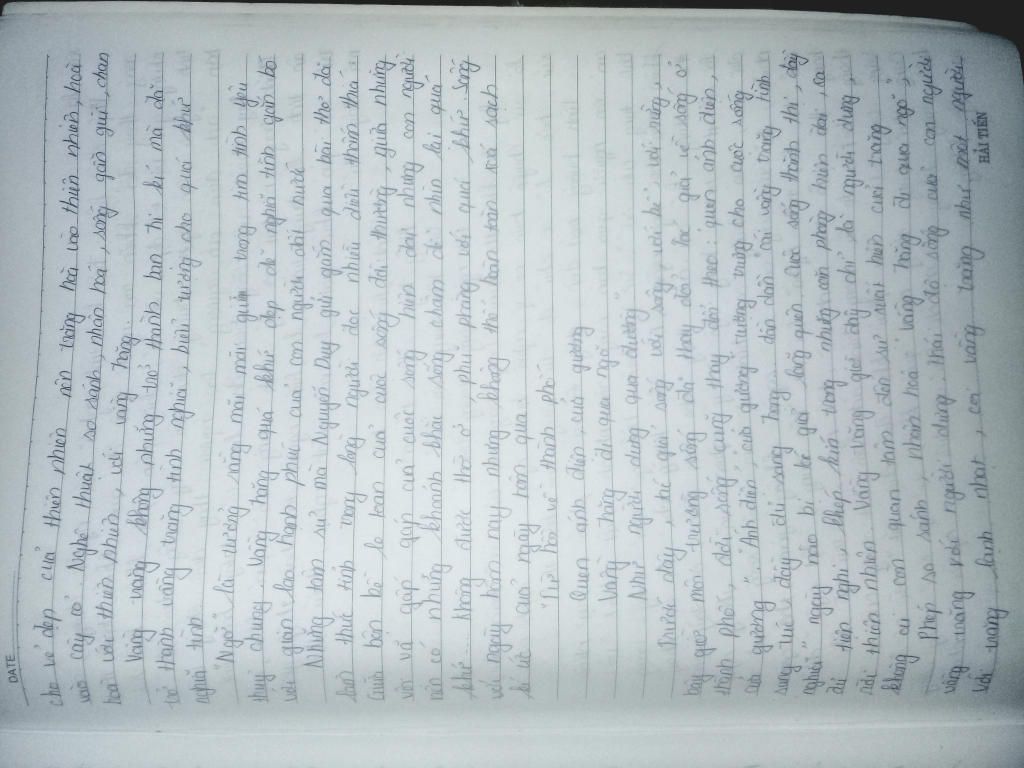 DATE
cho vẻ đẹp của thiên nhiên nên vâng hoà vào thiên nhiên, hoà
vào cây cỏ. Nghệ thuật so sánh, nhân hoá, sống gần gũi, chan
hoà với thiên nhiên, với vầng trăng.
Vầng trăng không những trở thành bạn tri kỉ mà đã
trở thành vầng trăng tình nghĩa, biểu tượng cho quá khứ
nghĩa tình.
"Ngỡ" là tưởng rằng mãi mãi giữ trong tim tình yêu
thuỷ chung, vầng trăng quá khứ đẹp đẽ nghĩa tình gắn bó
với gian lao hạnh phúc của con người đất nước
Những tâm sự mà Nguyễn Duy gửi gắm qua bài thơ đã
đánh thức tình trong lòng người đọc nhiều điều thấm thía
Giữa bộn bề lo toan của cuộc sống đời thường, giữa những
vội vã gấp gáp của cuộc sống hiện đại nhưng con người
nên có những khoảnh khắc sống chậm để nhìn lại quá
khứ. không được thờ ơ phũ phàng với quá khứ. Sống
với ngày hôm nay nhưng không thể hoàn toàn xoá sạch
kí ức của ngày hôm qua.
"Từ hồi về thành phố
Quen ánh điện, cửa gương
Vầng trăng đi qua ngõ
Như người dưng qua đường"
Trước đây, tác giả sống với sông, với bể, với rừng,
bây giờ môi trường sống đã thay đổi, tác giả về sống ở
thành phố, đời sống cũng thay đổi theo, quen ánh điện,
cửa gương". "Ánh điện, cửa gương tượng trưng cho cuộc sống
sung túc đầy đủ sang trọng dần dần cái vầng trăng tình
nghĩa" ngày nào bị tác giả lãng quên. Cuộc sống thành thị, đầy
đủ tiện nghi, khép kín trong những căn phòng hiện đại, xa
rời thiên nhiên. Vầng trăng giờ đây chỉ là người dưng,
chẳng ai còn quan tâm đến sự xuất hiện của trăng
Phép so sánh, nhân hoá "vầng trăng đi qua ngõ",
vầng trăng với người dưng, thái độ sống của con người
với trăng lạnh nhạt, coi vầng trăng như một người
HẢI TIẾN